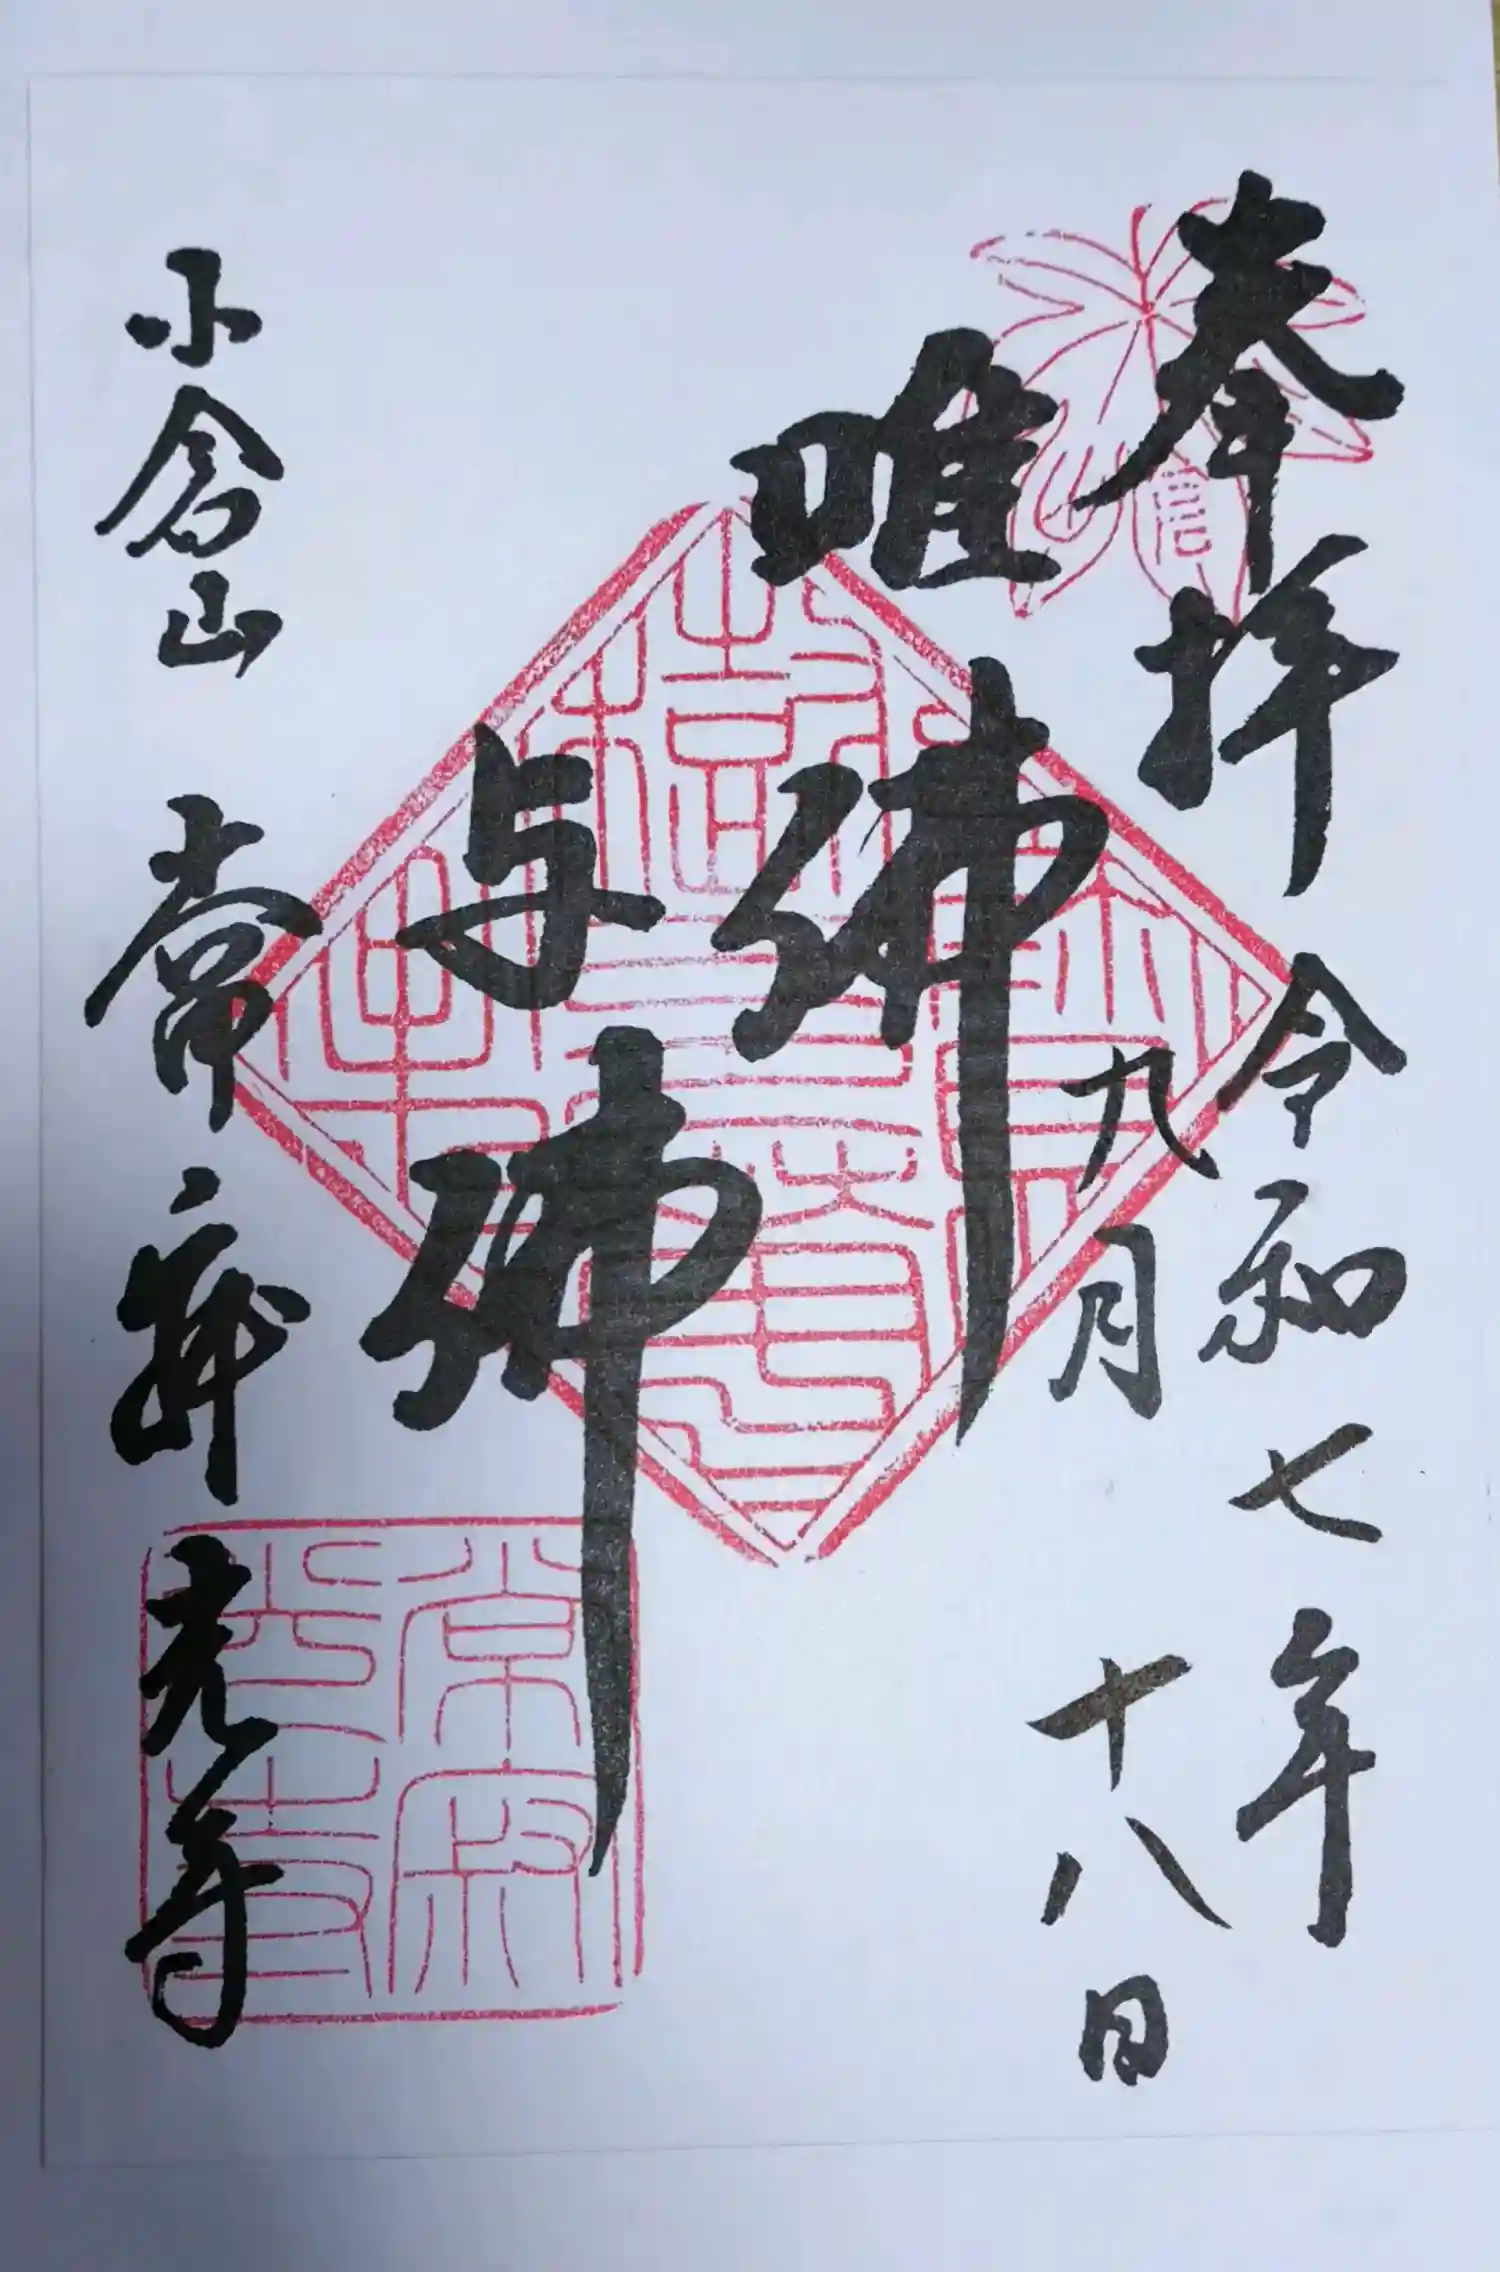 奉拝
令和七年
九月十八日
唯佛
与佛
小倉山 常寂光寺
常寂
光寺